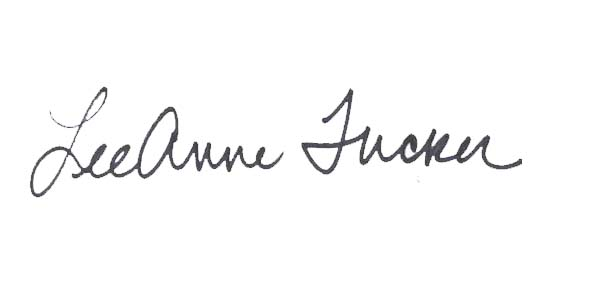 LeeAnne Tucker